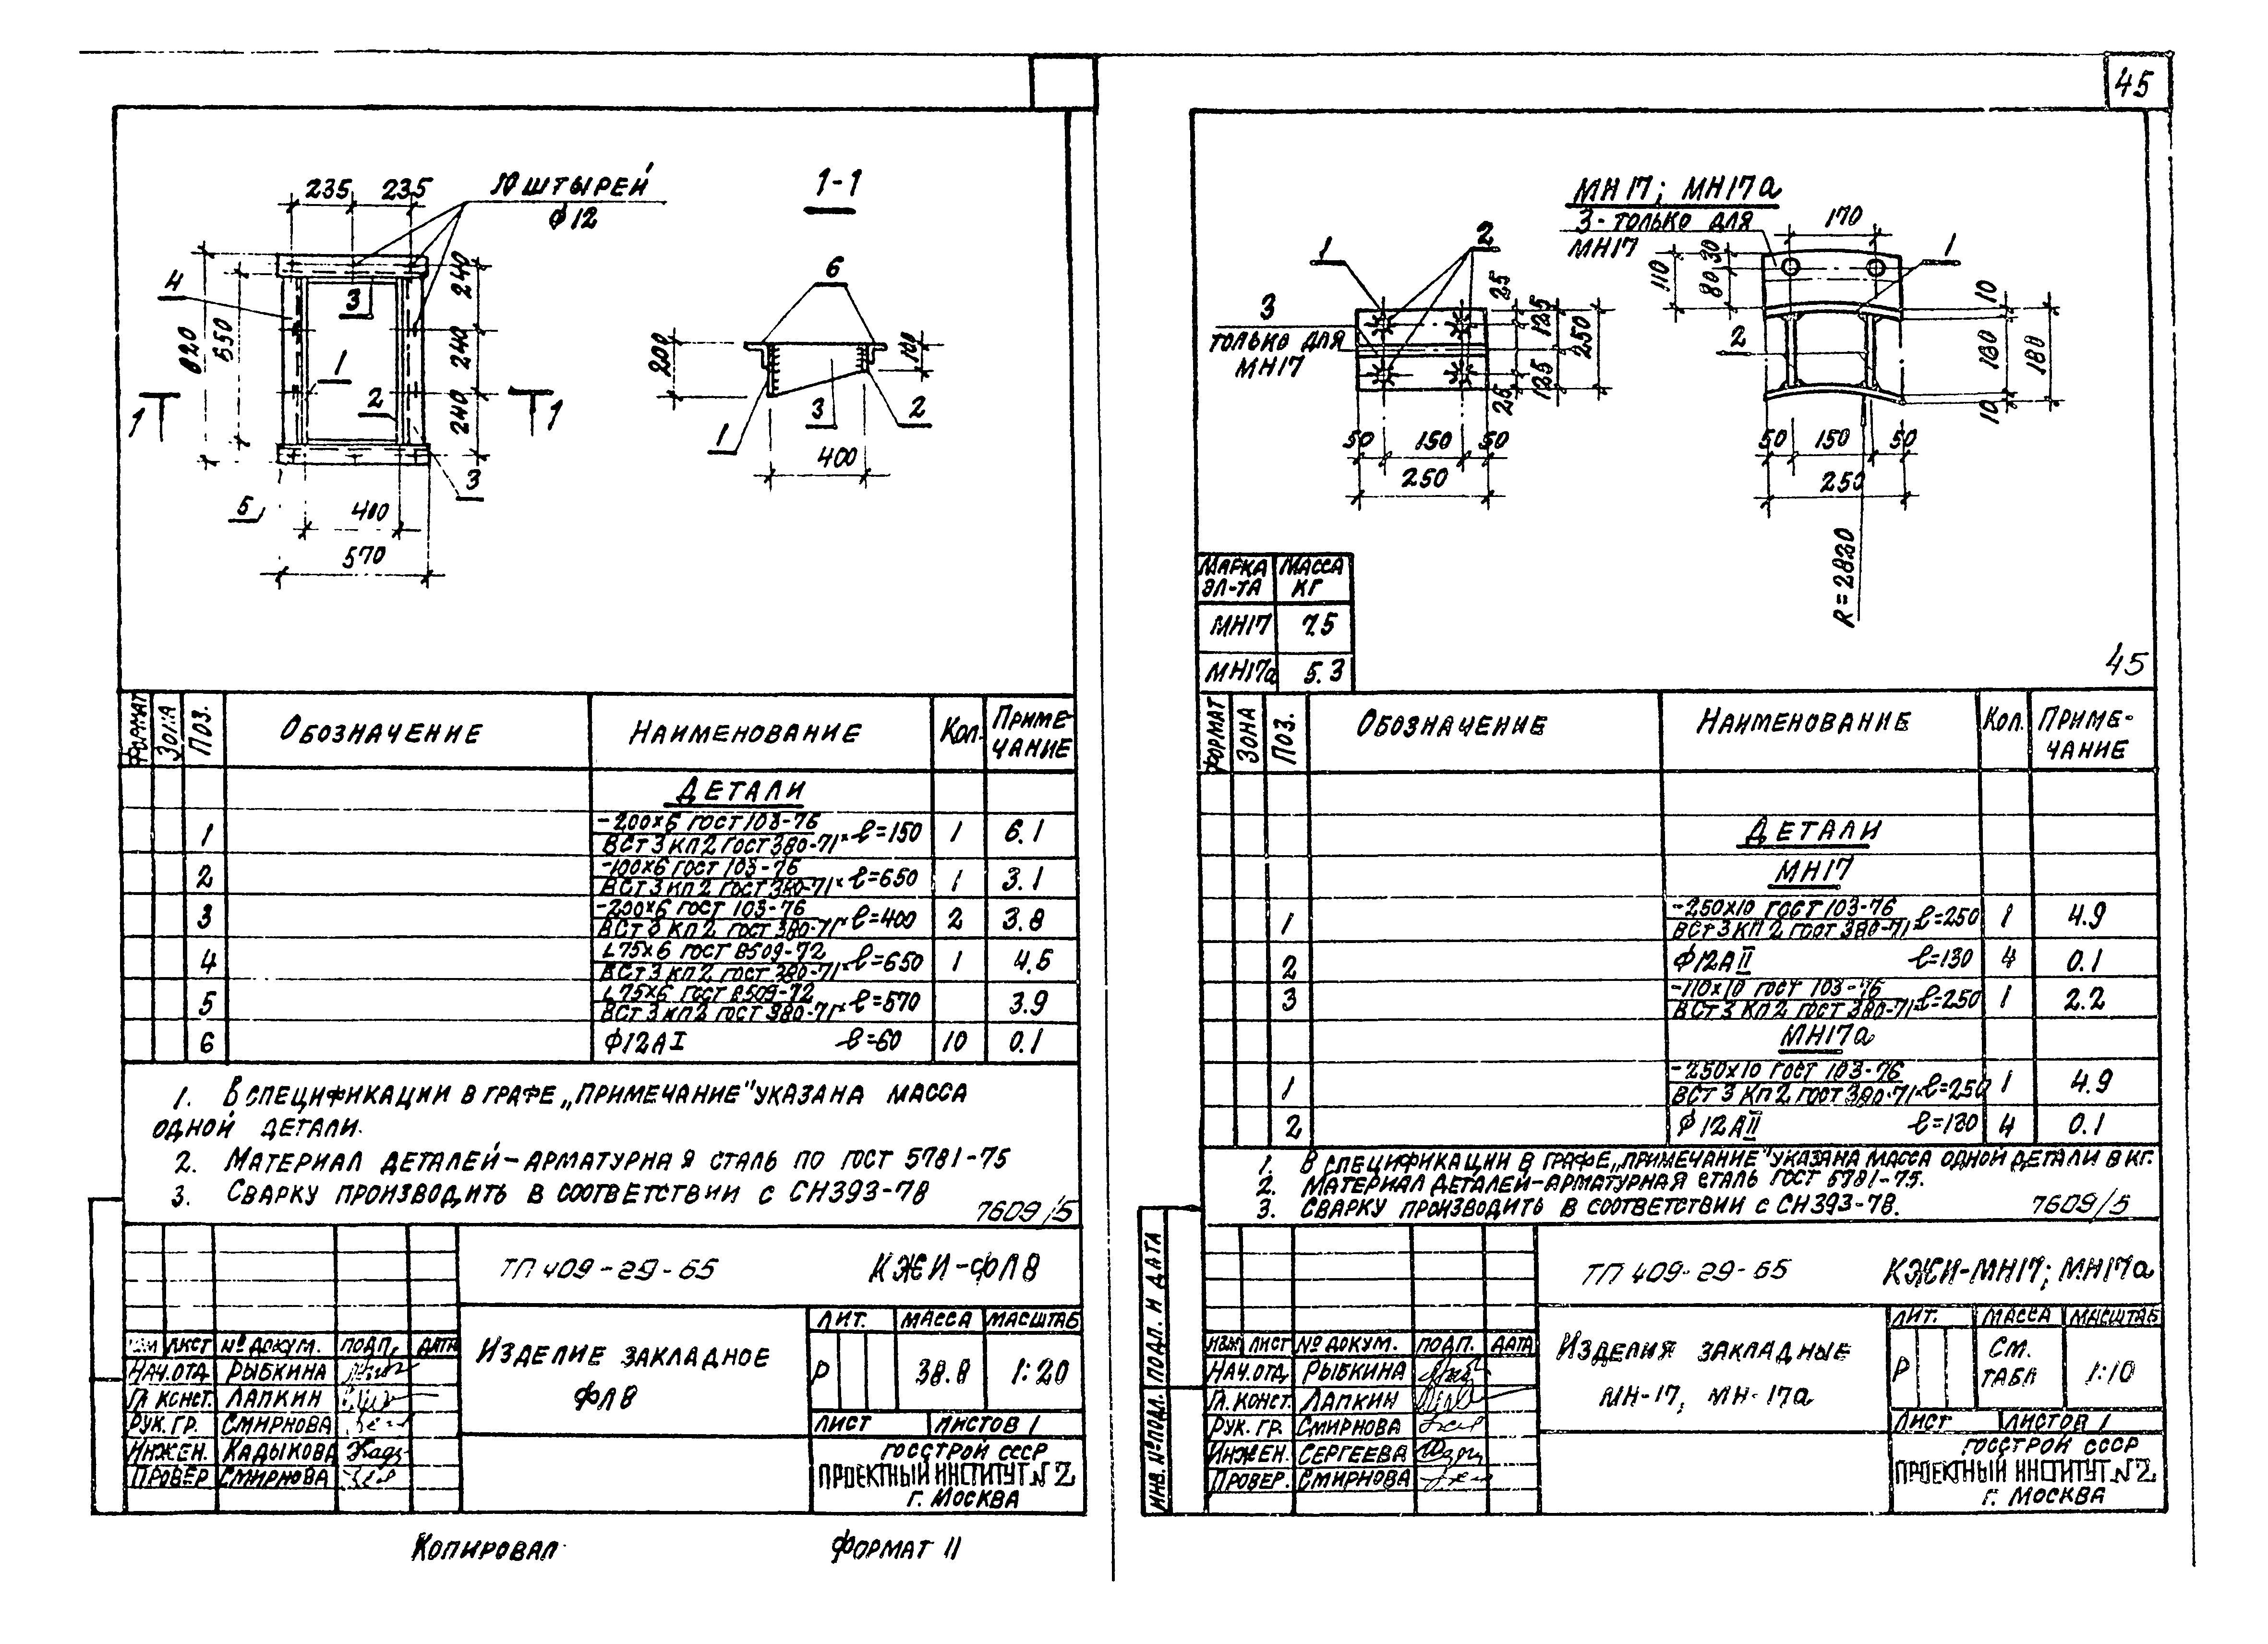 45
10 штырей
ф12
1-1
235 235
4
3
1
2
3
5
820
550
240
240
240
1 1
400
570
6
200
100
1
3
2
400
МН17; МН17а
3-только для
МН17
1
2
3
только для
МН17
25
125
250
125
25
50 150 50
250
170
1
110
30
80
2
10
180
10
50 150 50
250
R=2820
Марка эл-та Масса кг
МН17 7.5
МН17а 5.3
45
Формат Зона Поз. Обозначение Наименование Кол. Приме-чание
Детали
1 -200x6 ГОСТ 103-76 ВСт3кп2 ГОСТ 380-71* ℓ=150 1 6.1
2 -100x6 ГОСТ 103-76 ВСт3кп2 ГОСТ 380-71* ℓ=650 1 3.1
3 -200x6 ГОСТ 103-76 ВСт3кп2 ГОСТ 380-71* ℓ=400 2 3.8
4 L75x6 ГОСТ 8509-72 ВСт3кп2 ГОСТ 380-71* ℓ=650 1 4.5
5 L75x6 ГОСТ 8509-72 ВСт3кп2 ГОСТ 380-71* ℓ=570 3.9
6 ф12АI ℓ=60 10 0.1
1. В спецификации в графе „Примечание" указана масса
одной детали.
2. Материал деталей-арматурная сталь по ГОСТ 5781-75
3. Сварку производить в соответствии с СН393-78
7609/5
ТП 409-29-65 КЖИ-ФЛ8
Изделие закладное
ФЛ8
Лит. Масса Масштаб
Р 38.8 1:20
Лист Листов 1
Госстрой СССР
Проектный институт №2
г. Москва
Изм Лист № докум. Подп. Дата
Нач.отд. Рыбкина
Гл. конст. Лапкин
Рук. гр. Смирнова
Инжен. Кадыкова
Провер Смирнова
Копировал Формат 11
Формат Зона Поз. Обозначение Наименование Кол. Приме-чание
Детали
МН17
1 -250x10 ГОСТ 103-76 ВСт3кп2 ГОСТ 380-71* ℓ=250 1 4.9
2 ф12АII ℓ=130 4 0.1
3 -110x10 ГОСТ 103-76 ВСт3кп2 ГОСТ 380-71* ℓ=250 1 2.2
МН17а
1 -250x10 ГОСТ 103-76 ВСт3кп2 ГОСТ 380-71* ℓ=250 1 4.9
2 ф12АII ℓ=130 4 0.1
1. В спецификации в графе „Примечание" указана масса одной детали в кг.
2. Материал деталей-арматурная сталь ГОСТ 5781-75.
3. Сварку производить в соответствии с СН393-78.
7609/5
ТП 409-29-65 КЖИ-МН17; МН17а
Изделия закладные
МН-17, МН-17а
Лит. Масса Масштаб
Р См. табл 1:10
Лист Листов 1
Госстрой СССР
Проектный институт №2
г. Москва
Изм Лист № докум. Подп. Дата
Нач.отд. Рыбкина
Гл. конст. Лапкин
Рук. гр. Смирнова
Инжен. Сергеева
Провер. Смирнова
Инв. № подл. Подп. и дата